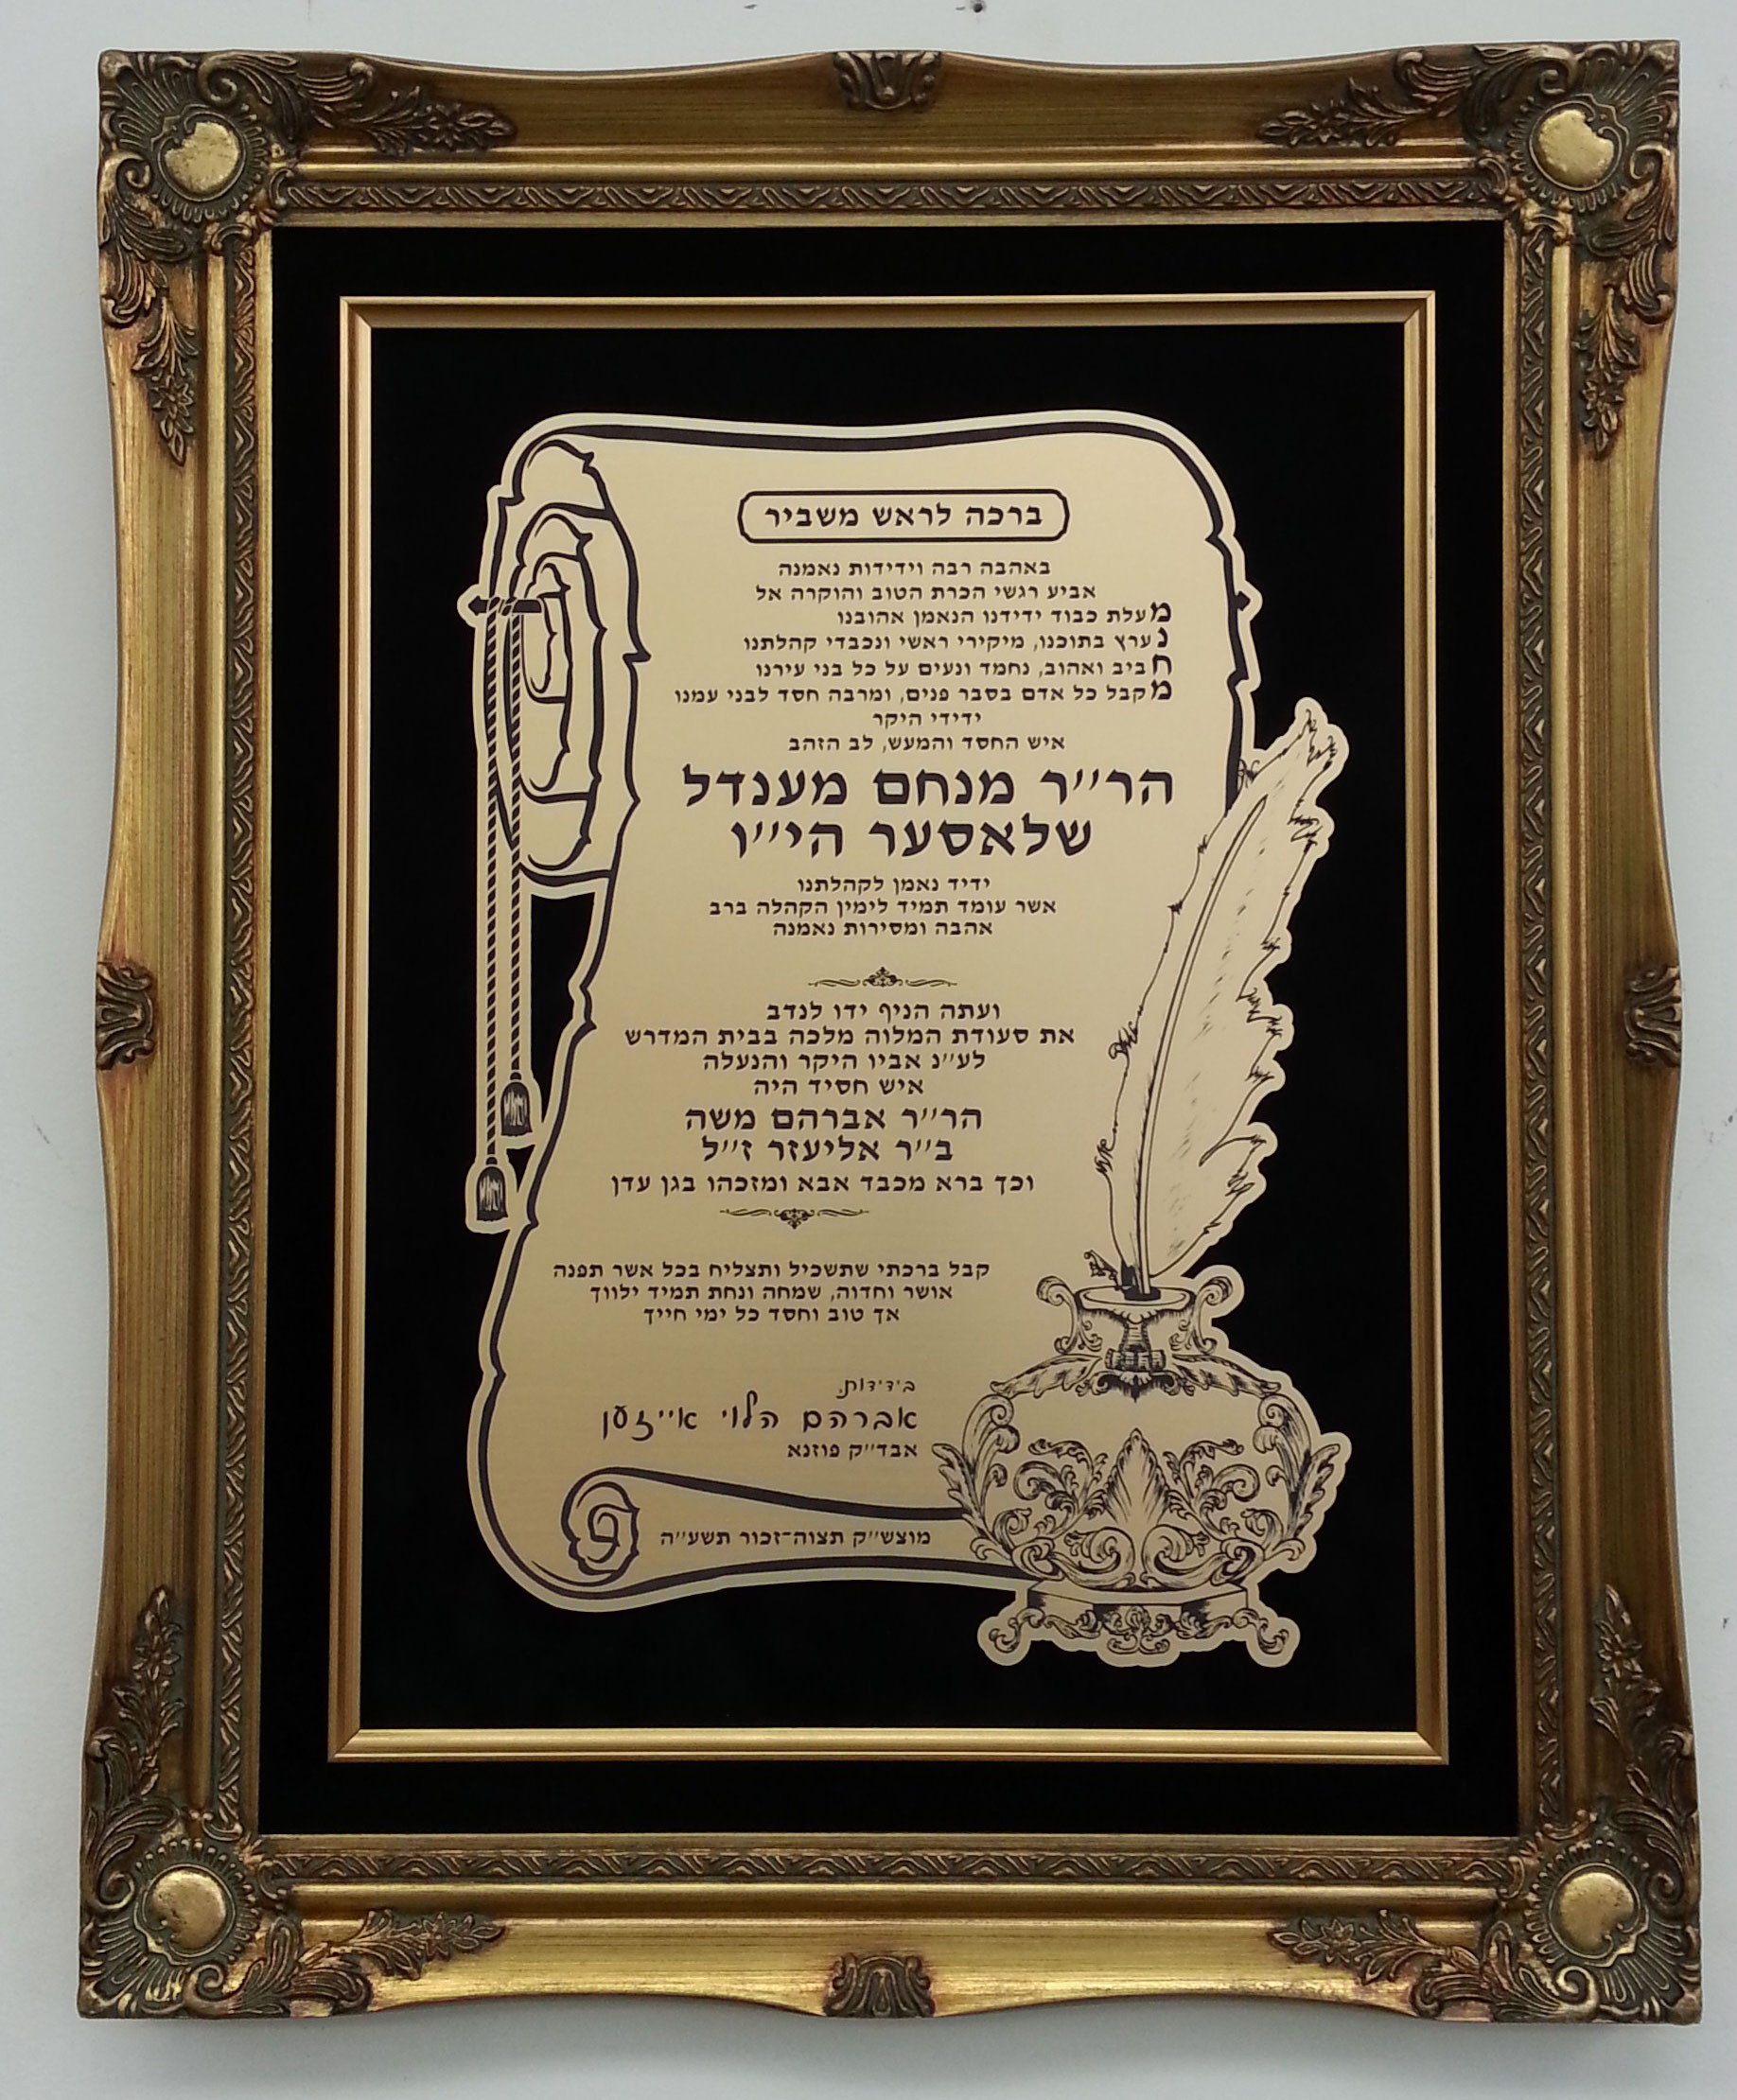 ברכה לראש משביר
באהבה רבה וידידות נאמנה
אביע רגשי הכרת הטוב והוקרה אל
מעלת כבוד ידידנו הנאמן אהובנו
נערץ בתוכנו, מיקירי ראשי ונכבדי קהלתנו
חביב ואהוב, נחמד ונעים על כל בני עירנו
מקבל כל אדם בסבר פנים, ומרבה חסד לבני עמנו
ידידי היקר
איש החסד והמעש, לב הזהב
הר״ר מנחם מענדל
שלאסער הי״ו
ידיד נאמן לקהלתנו
אשר עומד תמיד לימין הקהלה ברב
אהבה ומסירות נאמנה
ועתה הניף ידו לנדב
את סעודת המלוה מלכה בבית המדרש
לע״נ אביו היקר והנעלה
איש חסיד היה
הר״ר אברהם משה
ב״ר אליעזר ז״ל
וכך ברא מכבד אבא ומזכהו בגן עדן
קבל ברכתי שתשכיל ותצליח בכל אשר תפנה
אושר וחדוה, שמחה ונחת תמיד ילווך
אך טוב וחסד כל ימי חייך
בידידות,
אברהם הלוי אייזען
אבד״ק פוזנא
מוצש״ק תצוה־זכור תשע״ה